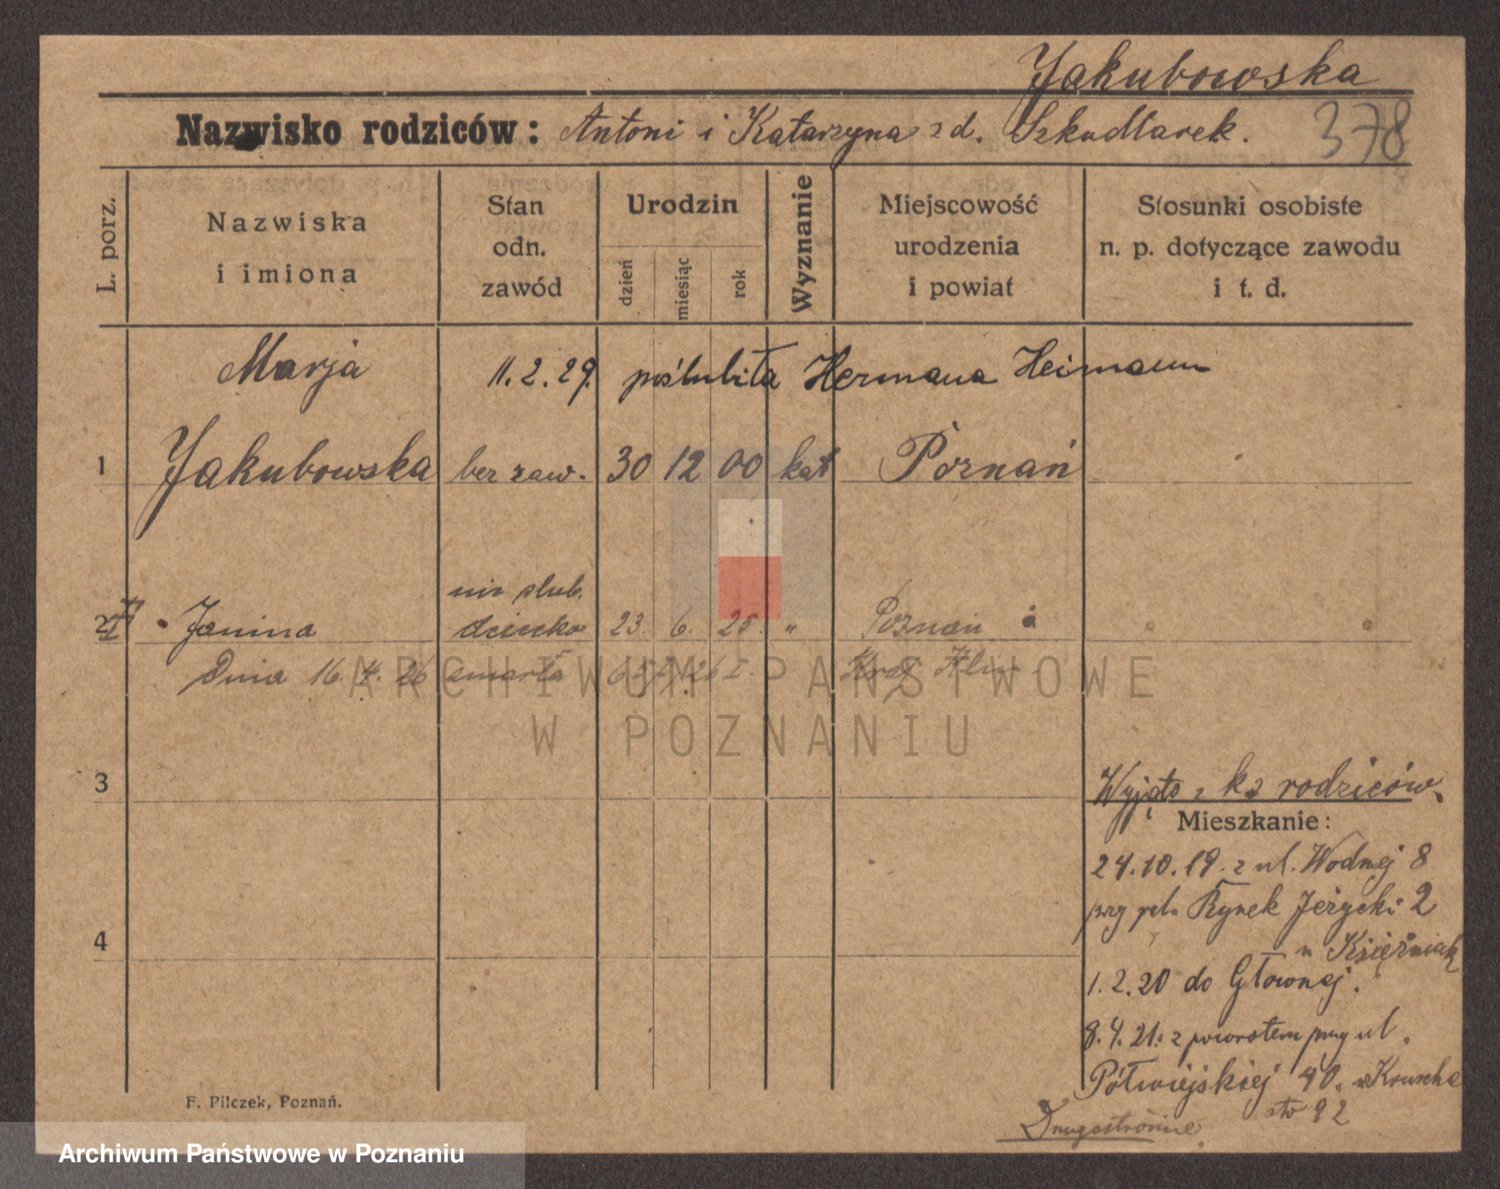 Jakubowska
Nazwisko rodziców: Antoni i Katarzyna z d. Szkudlarek.
378
L. porz.
Nazwiska
i imiona
Stan
odn.
zawód
Urodzin
dzień
miesiąc
rok
Wyznanie
Miejscowość
urodzenia
i powiat
Stosunki osobiste
n. p. dotyczące zawodu
i t. d.
Marja 11.2.29. poślubiła Hermana Heimann
1 Jakubowska bez zaw. 30 12 00 kat Poznań
nie ślub.
2 Janina dziecko 23. 6. 25. " Poznań
Dnia 16.4.26 zmarła
ARCHIWUM PAŃSTWOWE
W POZNANIU
3
Wyjęto z ks rodziców.
Mieszkanie:
24.10.19. z ul. Wodnej 8
przy ul. Rynek Jeżycki 2
u Księżniak
4
1.2.20 do Głownej.
8.4.21. z powrotem przy ul.
Półwiejskiej 40. u Kruscha
Drugostronnie.
F. Pilczek, Poznań.
Archiwum Państwowe w Poznaniu